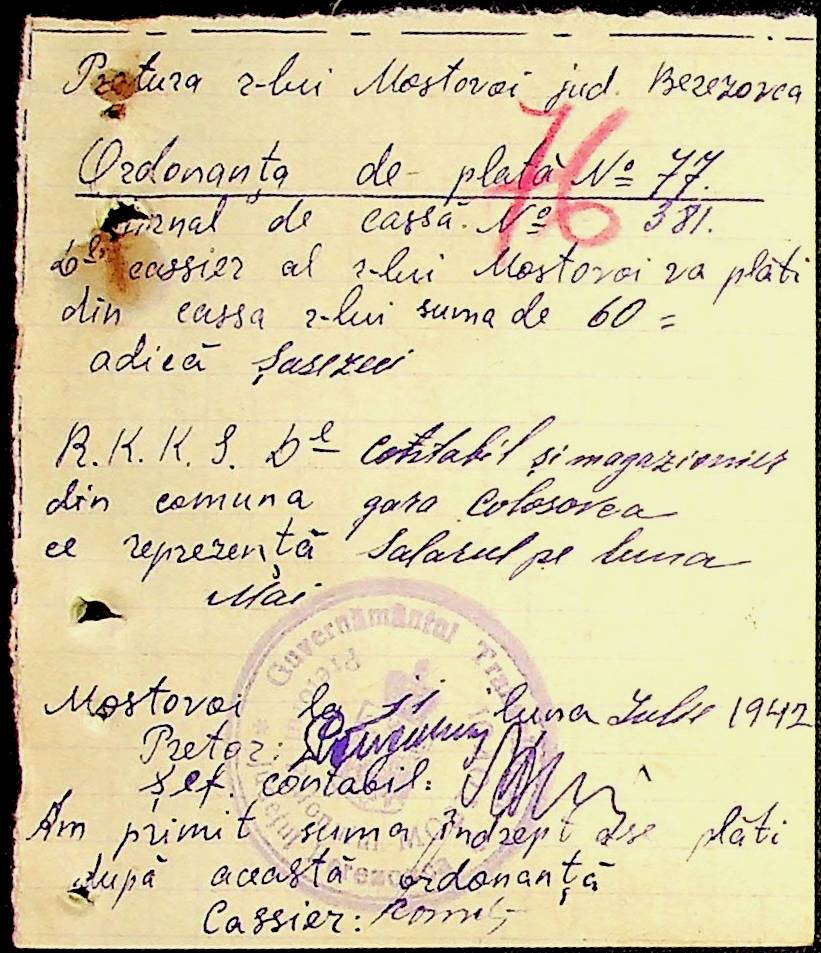 Pretura r-lui Mostovoi jud. Berezovca
76
Ordonanța de plată № 77.
Jurnal de cassă. № 381.
D-l cassier al r-lui Mostovoi va plăti
din cassa r-lui suma de 60 =
adică șasezeci
R. K. K. S. D-l Contabil și magazioner
din comuna gara Colosovca
ce reprezență Salarul pe luna
Mai
Guvernământul
Mostovoi la 11 luna Iulie 1942
Pretor:
Șef. contabil:
Am primit suma îndrept dse plăti
după această ordonanță
Cassier: